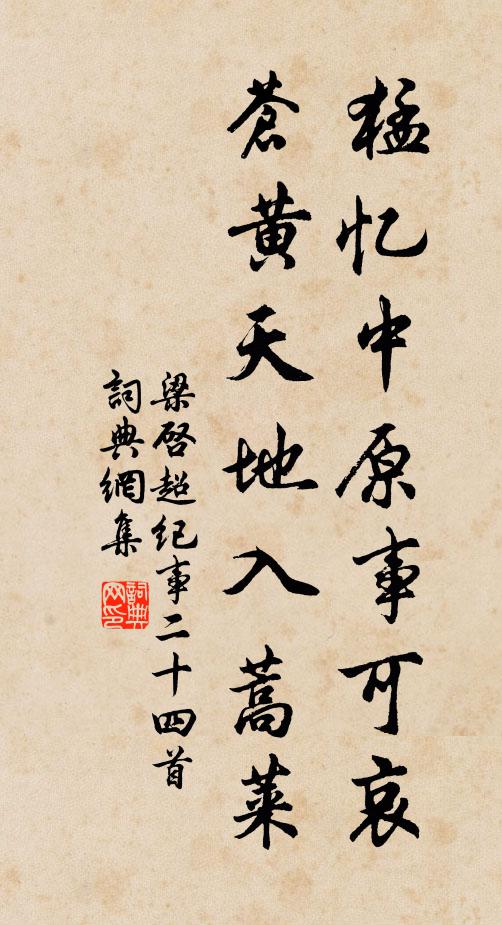 猛忆中原事可哀
蒼黄天地入蒿萊
梁启超纪事二十四首
詞典網集
詞典
网印